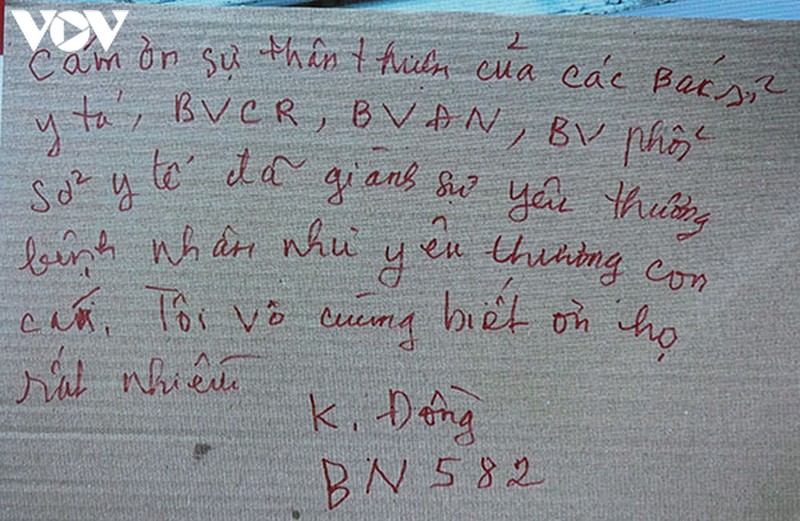 VOV
Cám ơn sự thân thiện của các Bác sỹ
y tá, BVCR, BVAN, BV phổi
sở y tế đã giành sự yêu thương
bệnh nhân như yêu thương con
cái. Tôi vô cùng biết ơn họ
rất nhiều
K. Đông
BN 582